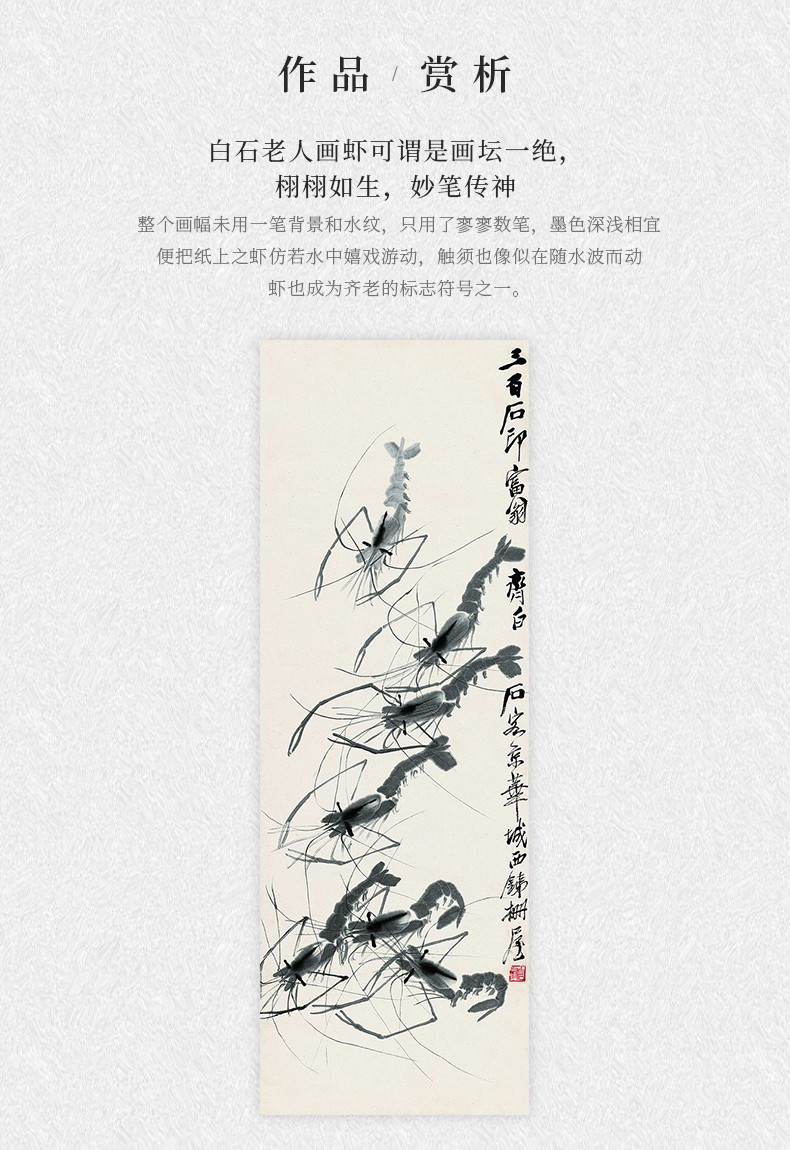 作品 / 赏析
白石老人画虾可谓是画坛一绝，
栩栩如生，妙笔传神
整个画幅未用一笔背景和水纹，只用了寥寥数笔，墨色深浅相宜
便把纸上之虾仿若水中嬉戏游动，触须也像似在随水波而动
虾也成为齐老的标志符号之一。
三百石印富翁 齊白石客京華城西鐵柵屋